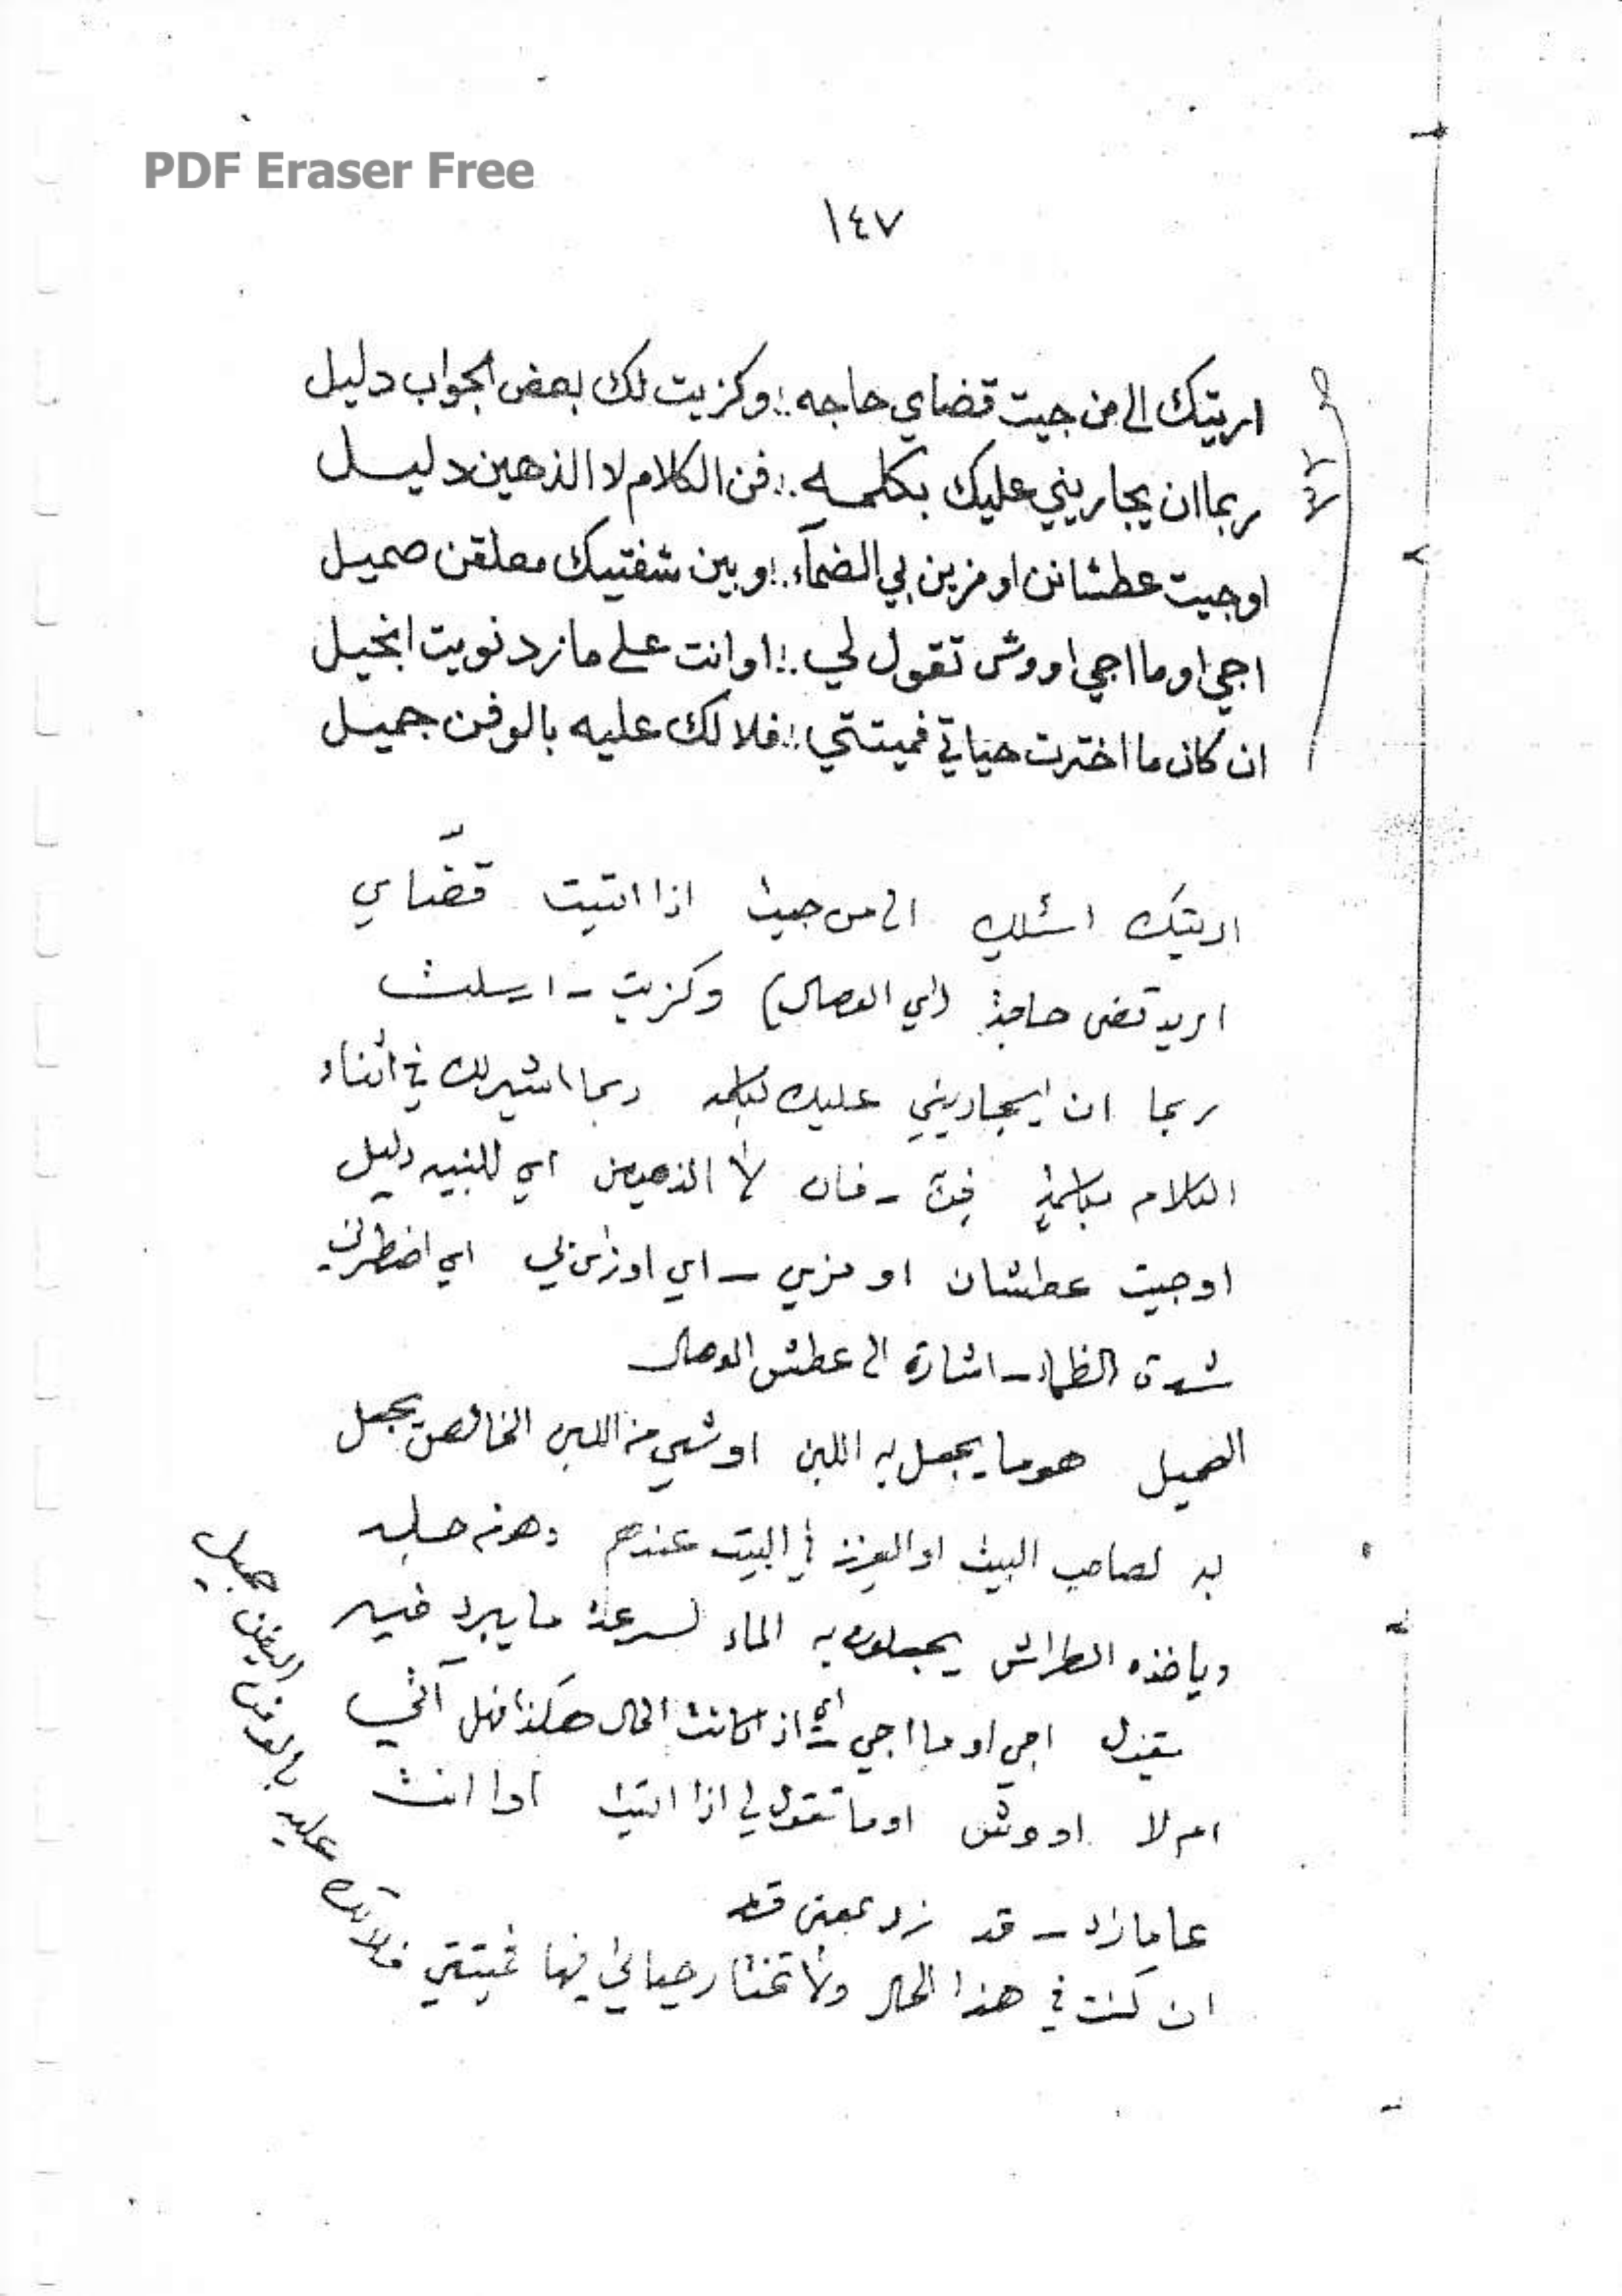 PDF Eraser Free
١٤٧
اريتك الى من جيت قضاي حاجه .: وكزيت لك بعض الجواب دليل
ربما ان يجاريني عليك بكلمه .: فن الكلام لا الذهين دليل
اوجيت عطشانن اومزين بي الضمآء .: وبين شفتيك معلقن صميل
اجي او ما اجي اووش تقول لي .: اوانت على مازد نويت انجيل
ان كان ما اخترت حياتي فميتتي .: فلالك عليه بالوفن جميل
اريتك اسئلك الى من جيت اذا اتيت قضاي
اريد تقضى حاجة (اي الوصال) وكزيت - ارسلت
ربما ان ايجاريني عليك بكلمه ربما اشير لك في اثناء
الكلام بكلمة فن - فان لا الذهين اي للنبيه دليل
اوجيت عطشان او مزي - اي اوزابي اي اضطرني
شدة الظماء - اشارة الى عطش الوصال
الصميل هو ما يجعل به اللبن او شي من اللبن الخالص يجعل
به لصاحب البيت او العزيز في البيت عندهم
وياخذه الطراش يجعلون به الماء لسرعة ما يبرد فيه
يقول اجي او ما اجي اي اذا كانت الحال هكذا فهل آتي
ام لا او وش او ما تقول لي اذا اتيت او انت
عا مازاد - قد زد بمعنى قد
ان كنت في هذا الحال ولا تختار حياتي فيها فميتتي فلا لك عليه بالوفن جميل